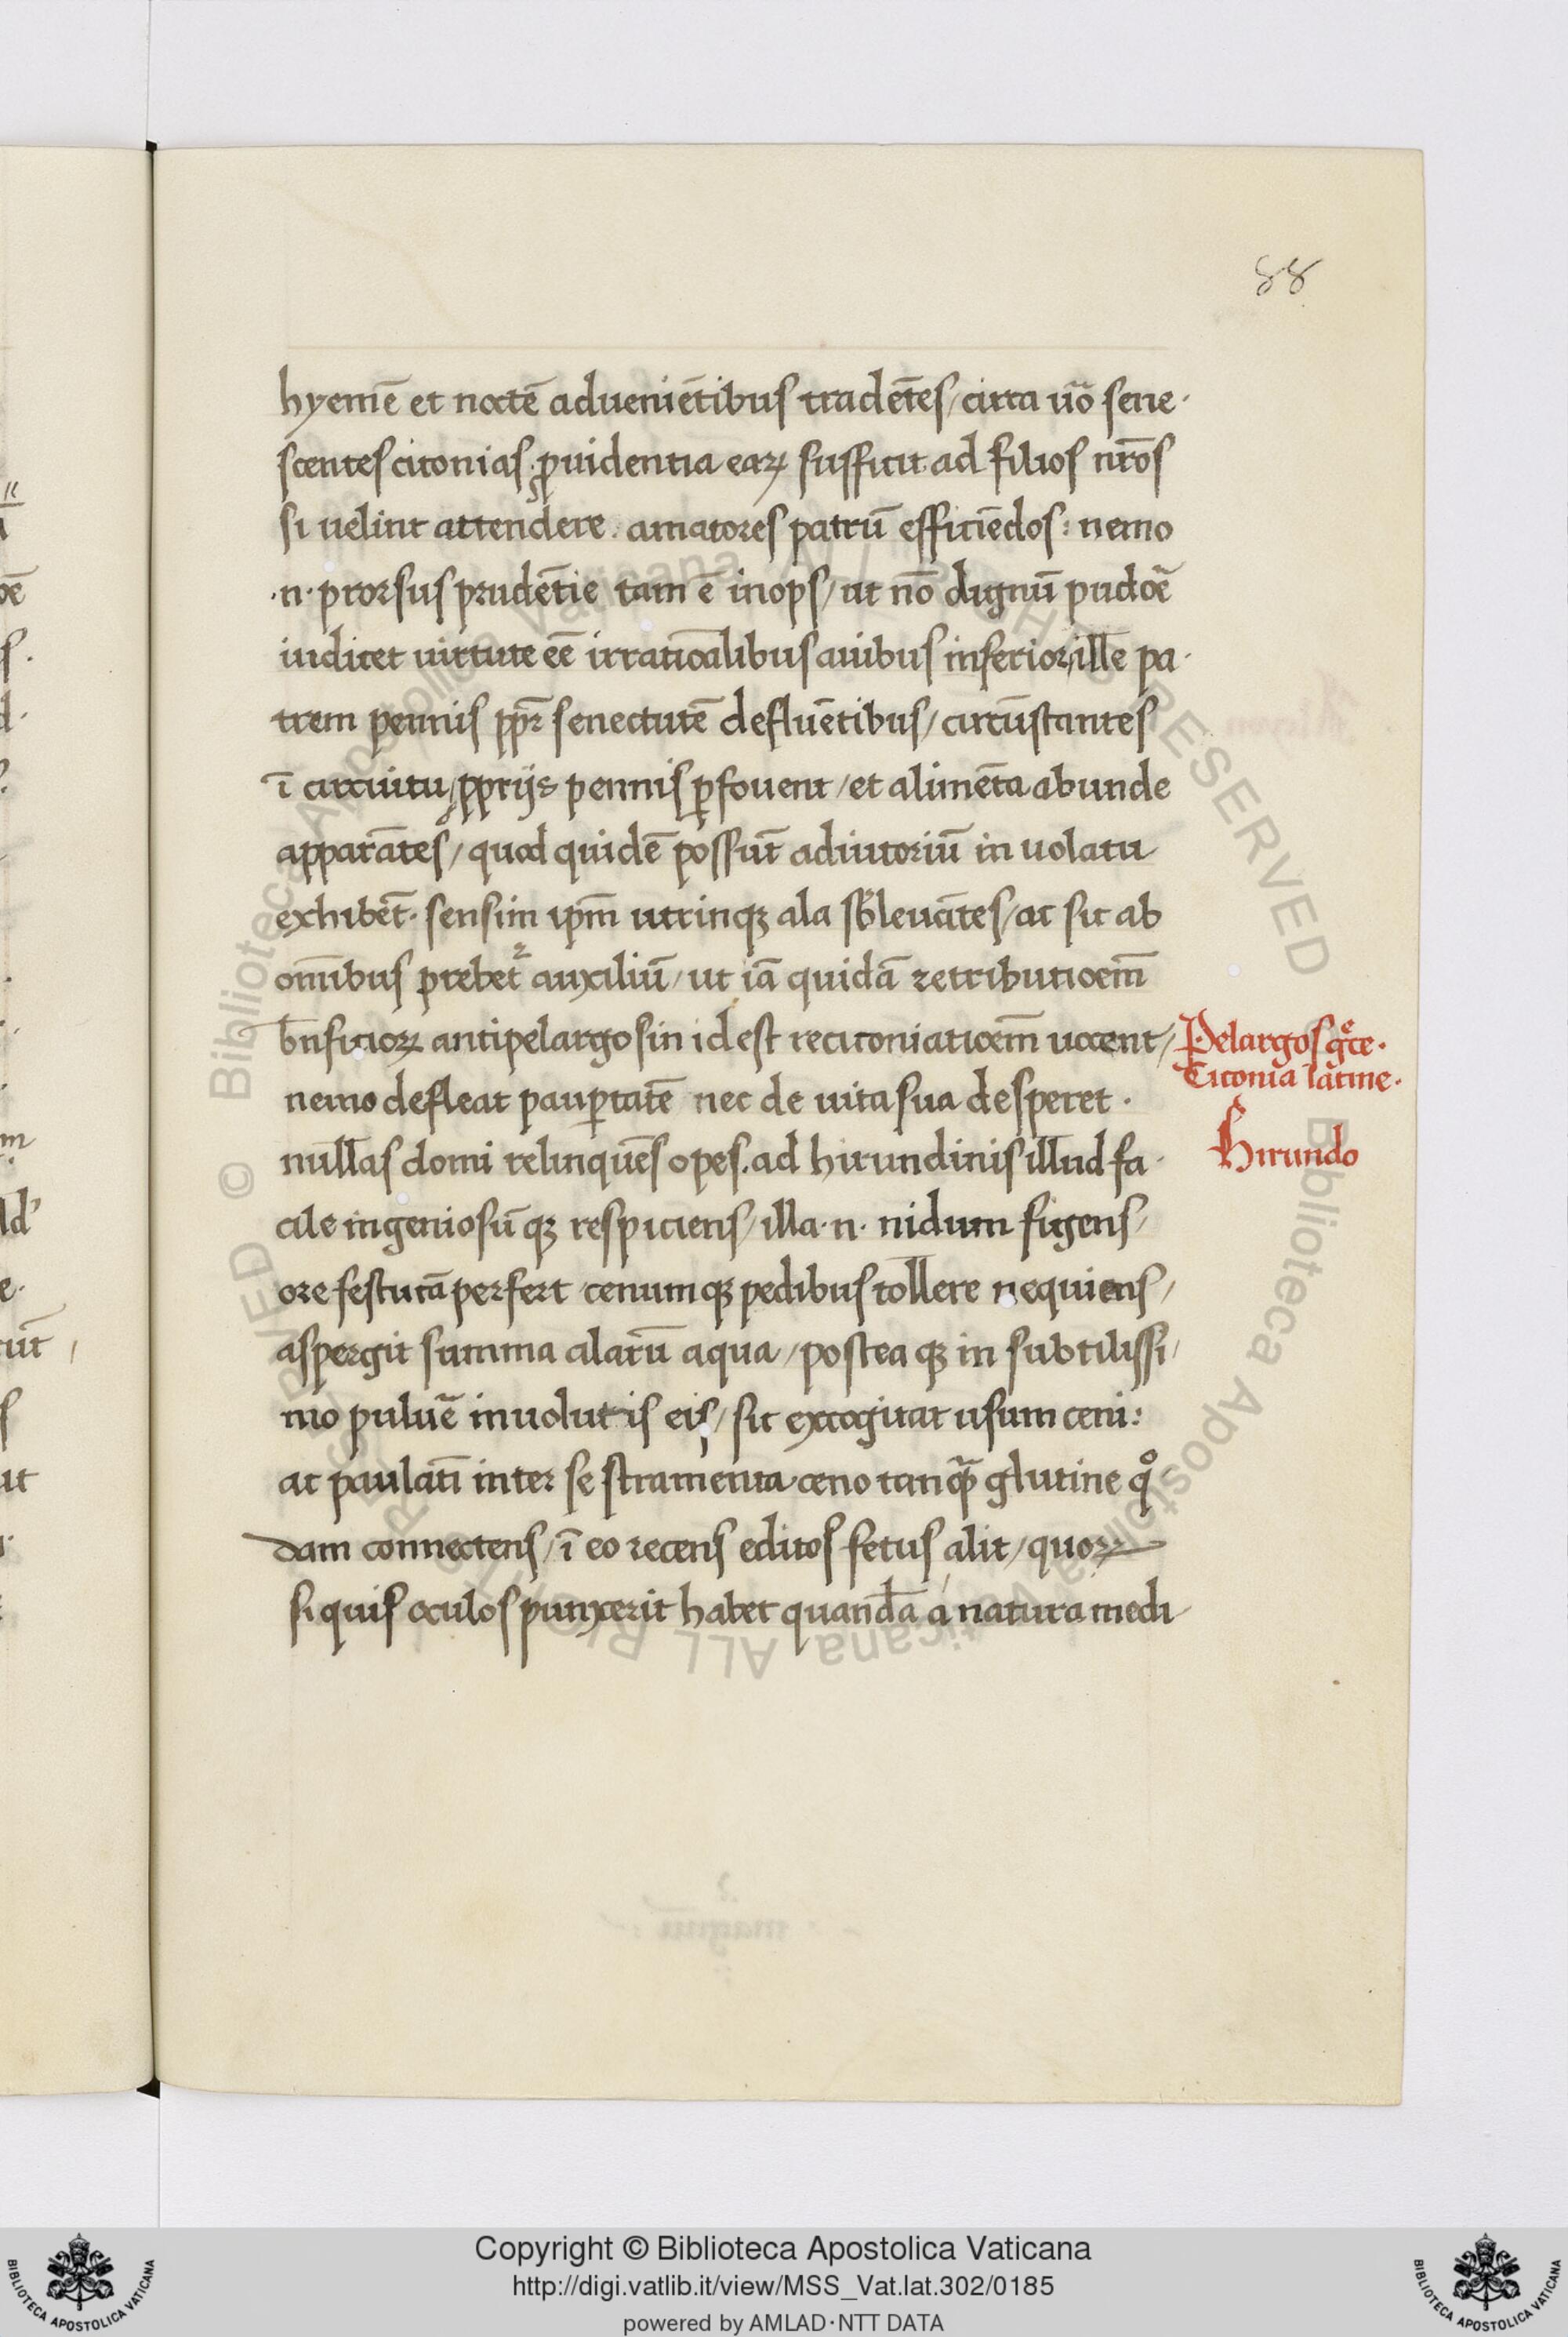 88
hyemē et noctē adueniētibus tradētes/ circa uō sene·
scentes ciconias· ꝓuidentia eaꝝ sufficit ad filios nrōs
si uelint attendere. amatores patrū efficiēdos: nemo
·n· prorsus prudētie tam ē inops/ ut nō dignū pudoē
iudicet uirtute eē irratioālibus auibus inferior/ ille pa·
trem pennis ppr̄ senectutē defluētibus/ circūstantes
ī circuitu/ ꝓprijs pennis ꝑfouent/ et alimēta abunde
apparātes/ quod quidē possūt adiutoriū in uolatu
exhibēt· sensim ipm̄ utrinqꝫ ala sb̄leuātes/ ac sic ab
omībus prebet² auxiliū/ ut iā quidā retributioem̄
bn̄ficioꝝ antipelargosin id est reciconiatioem̄ uocent/
Pelargos gͨce·
Ciconia latine·
nemo defleat pauꝑtatē nec de uita sua desperet·
nullas domi relinquēs opes. ad hirundinis illud fa·
Hirundo
cile ingeniosū qꝫ respiciens/ illa ·n· nidum figens/
ore festucā perfert cenum qꝫ pedibus tollere nequiens/
aspergit summa alarū aqua/ postea qꝫ in subtilissi/
mo puluē inuolutis eis/ sic excogitat usum ceni:
ac paulatī inter se stramenta ceno tanꝙ̄ glutine qͦ
dam connectens/ ī eo recens editos fetus alit/ quoꝝ
si quis oculos punxerit habet quandā a natura medi
Copyright © Biblioteca Apostolica Vaticana
http://digi.vatlib.it/view/MSS_Vat.lat.302/0185
powered by AMLAD·NTT DATA
BIBLIOTECA APOSTOLICA VATICANA
BIBLIOTECA APOSTOLICA VATICANA